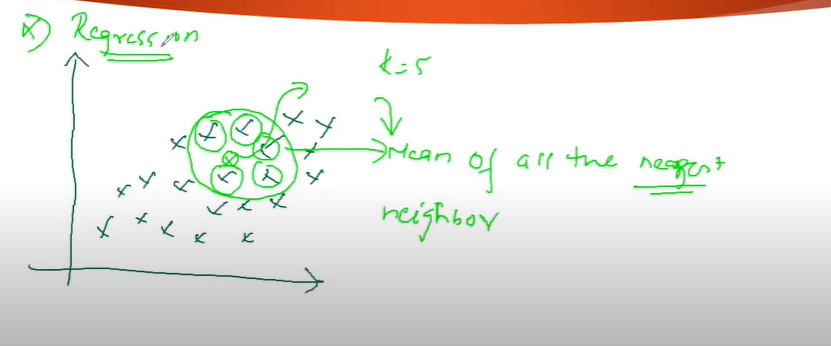 x) Regression
k=5
Mean of all the nearest
neighbor